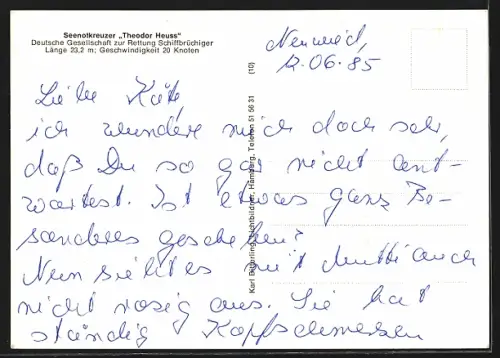 Seenotkreuzer „Theodor Heuss“
Deutsche Gesellschaft zur Rettung Schiffbrüchiger
Länge 23,2 m; Geschwindigkeit 20 Knoten
Neuwied,
12.06.85
(10)
Karl Lichtbildner, Hamburg, Telefon 51 56 31
Liebe Käte,
ich wundere mich doch sehr,
daß Du so gar nicht ant-
wortest. Ist etwas ganz Be-
sonderes geschehen?
Nun sieht es mit Mutti auch
nicht rosig aus. Sie hat
ständig Kopfschmerzen